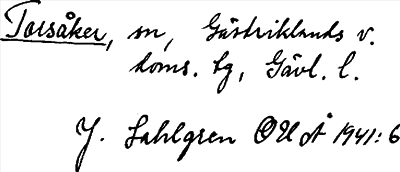 Torsåker, sn, Gästriklands v.
doms. tg, Gävl. l.
J. Sahlgren OUÅ 1941: 6